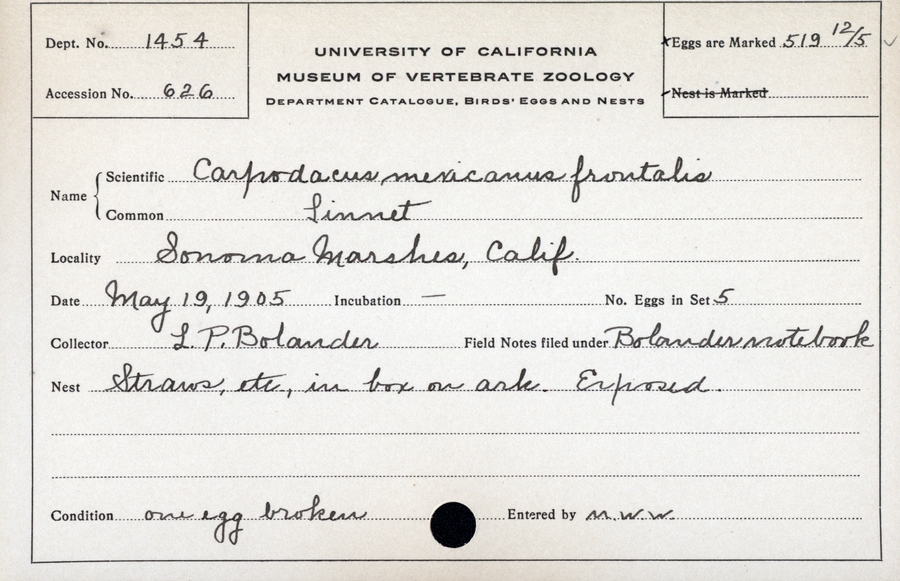 Dept. No. 1454
Accession No. 626
UNIVERSITY OF CALIFORNIA
MUSEUM OF VERTEBRATE ZOOLOGY
DEPARTMENT CATALOGUE, BIRDS' EGGS AND NESTS
Eggs are Marked 519 12/5
Nest is Marked
Name
Scientific Carpodacus mexicanus frontalis
Common Linnet
Locality Sonoma Marshes, Calif.
Date May 19, 1905 Incubation — No. Eggs in Set 5
Collector L. P. Bolander Field Notes filed under Bolander notebook
Nest Straws, etc., in box on ark. Exposed.
Condition one egg broken Entered by M.W.W.